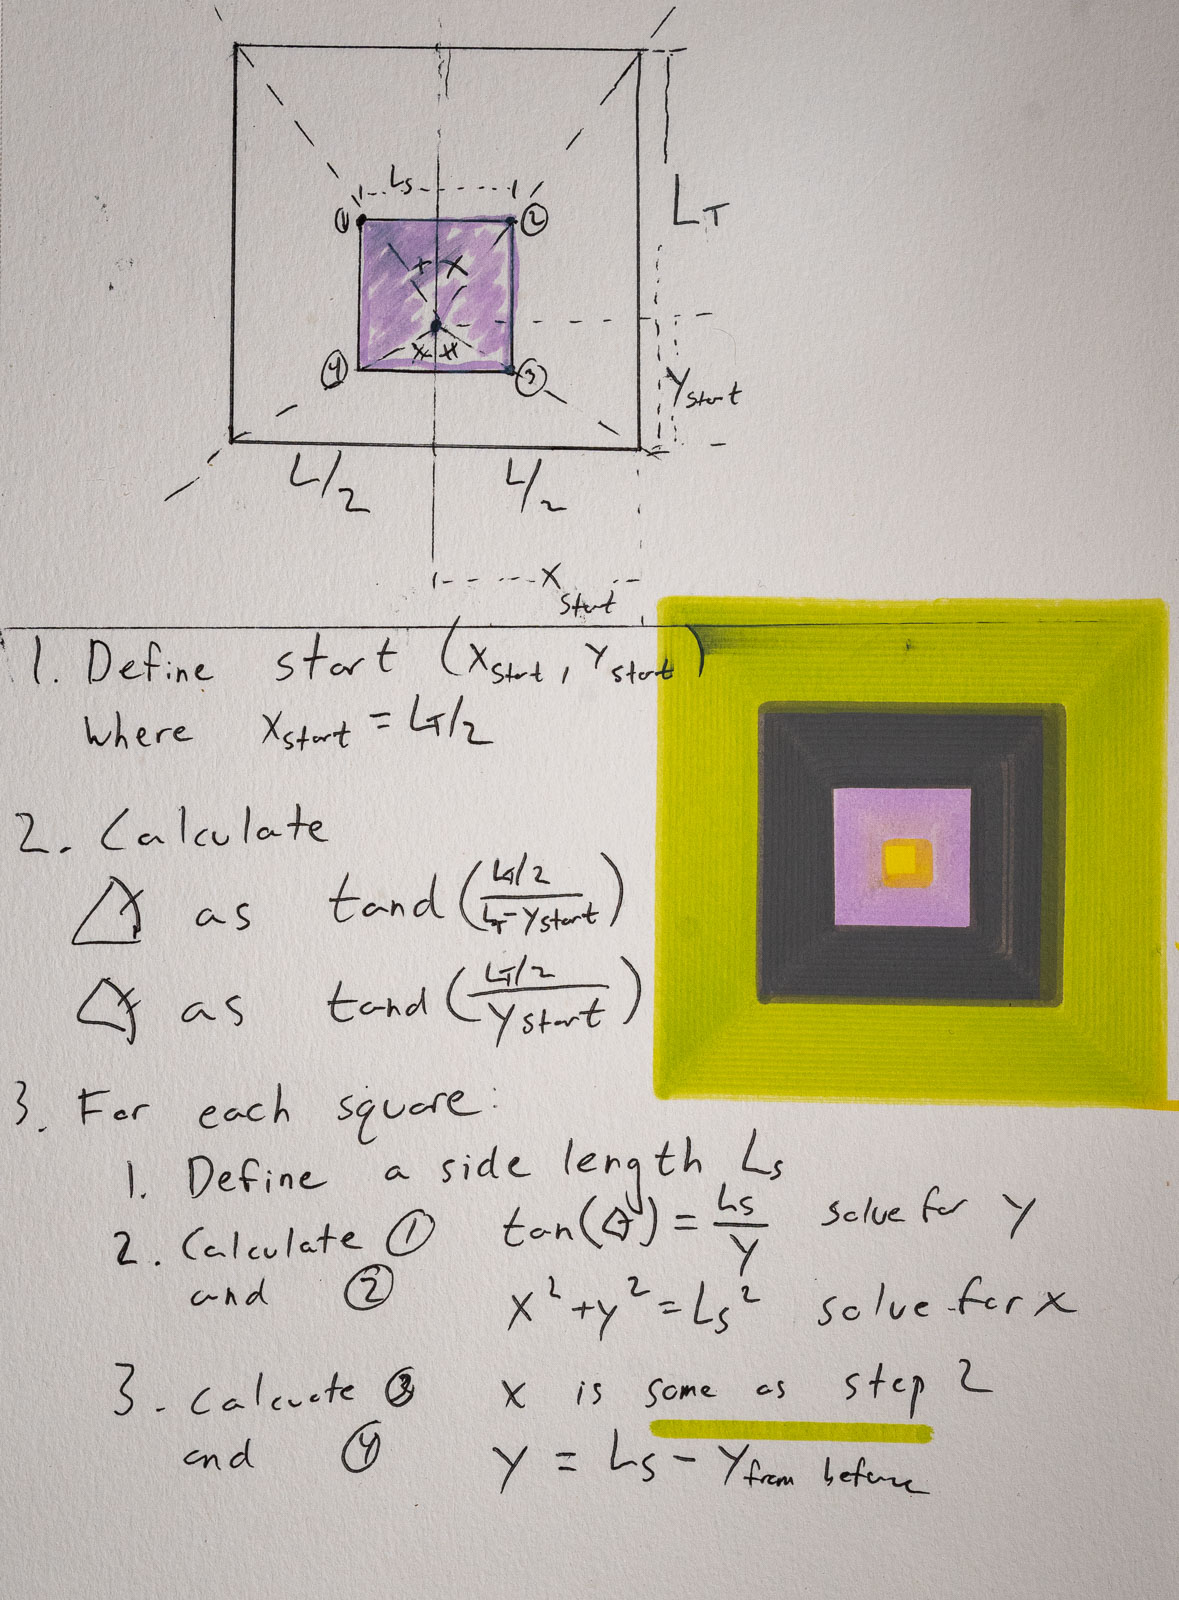 Ls
① ②
+ x
x x
④ ③
LT
Ystart
L/2 L/2
Xstart
1. Define start (Xstart, Ystart)
where Xstart = LT/2
2. Calculate
as tand((LT/2)/(LT-Ystart))
as tand((LT/2)/Ystart)
3. For each square:
1. Define a side length Ls
2. Calculate ① tan( ) = Ls/Y solve for Y
and ② x²+y²=Ls² solve for x
3. Calcuate ③ x is same as step 2
and ④ Y = Ls - Yfrom before